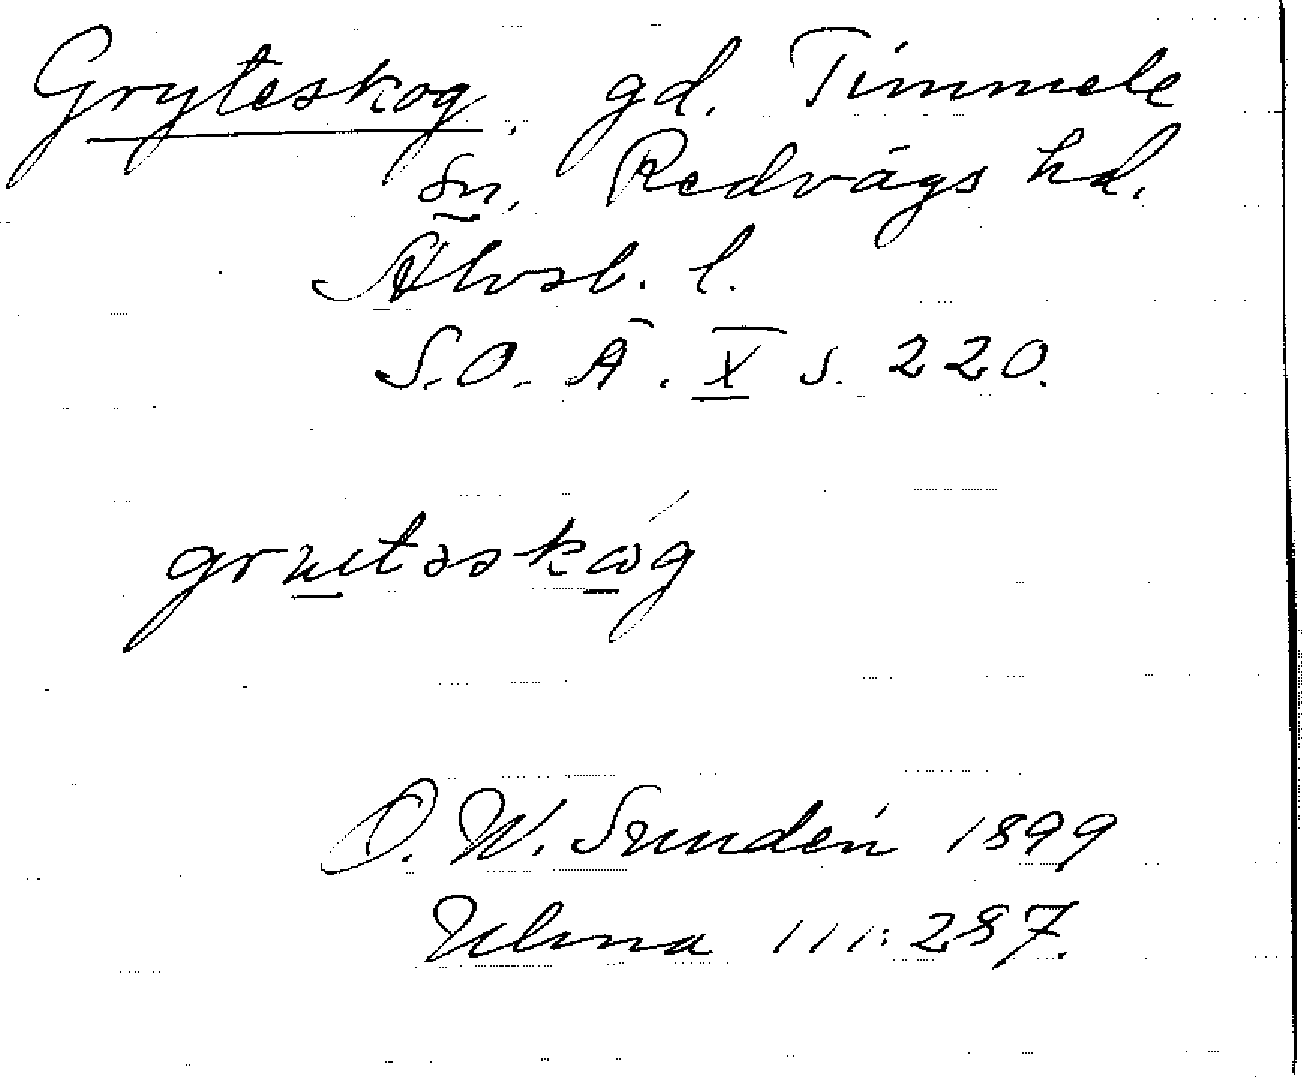 Gryteskog, gd. Timmele
sn, Redvägs hd.
Älvsb. l.
S.O.Ä. X s. 220.
grutəskωg
O. W. Sundén 1899
Ulma 111:287.